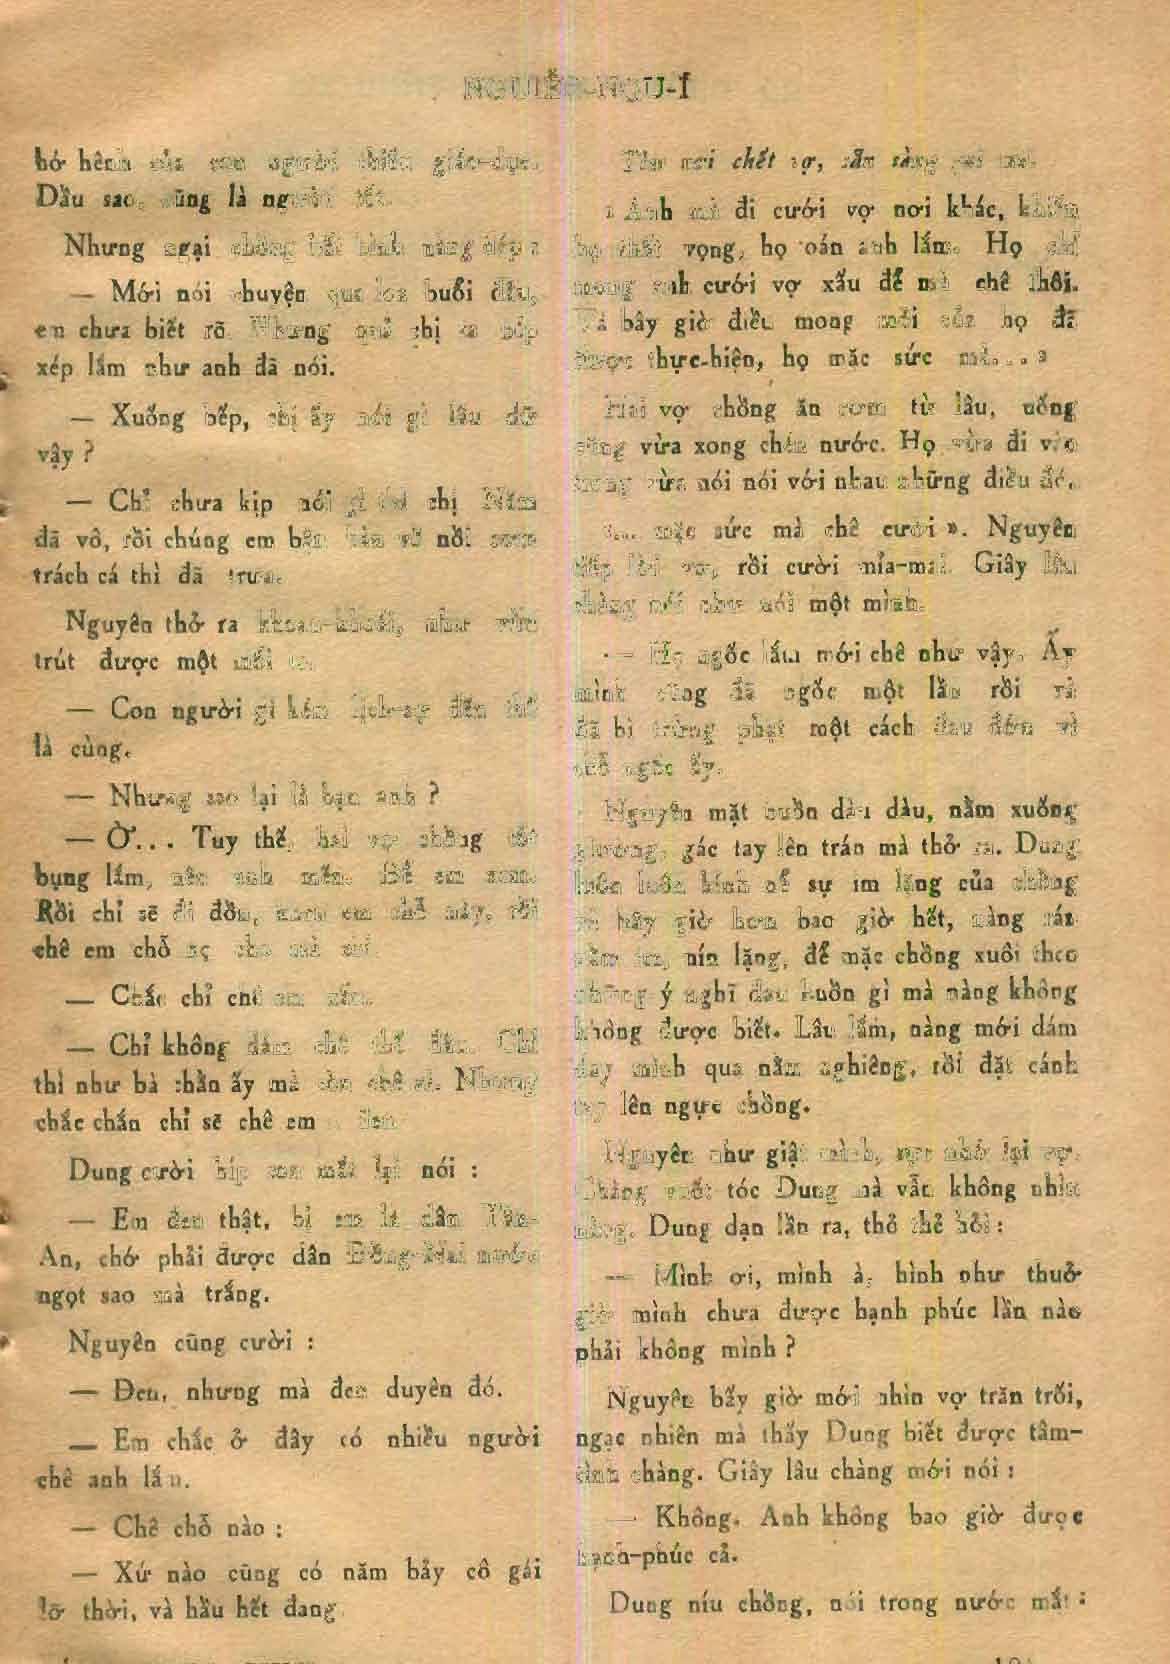 NGUIỄN-NGU-Í
hớ hênh của con người thiếu giáo-dục.
Dầu sao, cũng là người tốt.
Nhưng ngại chồng bất bình nàng tiếp :
— Mới nói chuyện qua loa buổi đầu,
em chưa biết rõ. Nhưng quả chị ta bép
xép lắm như anh đã nói.
— Xuống bếp, chị ấy nói gì lâu dữ
vậy ?
— Chỉ chưa kịp nói gì thì chị Năm
đã vô, rồi chúng em bàn về nồi cơm
trách cá thì đã trưa.
Nguyên thở ra khoan-khoái, như vừa
trút được một mối lo.
— Con người gì kém lịch-sự đến thế
là cùng.
— Nhưng sao lại là bạn anh ?
— Ờ... Tuy thế, hai vợ chồng tốt
bụng lắm, nên anh mến. Để em xem.
Rồi chỉ sẽ đi đồn, khen em chỗ này, rồi
chê em chỗ nọ cho mà coi.
— Chắc chỉ chê em nhiều.
— Chỉ không dám chê thế đâu. Chỉ
thì như bà chằn ấy mà còn chê ai. Nhưng
chắc chắn chỉ sẽ chê em đen.
Dung cười híp con mắt lại nói :
— Em đen thật, bị em là dân Tân-
An, chớ phải được dân Đồng-Nai nước
ngọt sao mà trắng.
Nguyên cũng cười :
— Đen, nhưng mà đen duyên đó.
— Em chắc ở đây có nhiều người
chê anh lắm.
— Chê chỗ nào :
— Xứ nào cũng có năm bảy cô gái
lỡ thời, và hầu hết đang
chết vợ, sẵn sàng
» Anh mà đi cưới vợ nơi khác, khiến
họ thất vọng, họ oán anh lắm. Họ chỉ
mong anh cưới vợ xấu để mà chê thôi.
Và bây giờ điều mong mỏi của họ đã
được thực-hiện, họ mặc sức mà... »
Hai vợ chồng ăn cơm từ lâu, uống
cũng vừa xong chén nước. Họ vừa đi vào
trong vừa nói nói với nhau những điều đó.
«... mặc sức mà chê cười ». Nguyên
tiếp lời vợ, rồi cười mỉa-mai. Giây lâu
chàng nói như nói một mình.
— Họ ngốc lắm mới chê như vậy. Ấy
mình cũng đã ngốc một lần rồi và
đã bị trừng phạt một cách đau đớn vì
chỗ ngốc ấy.
Nguyên mặt buồn dàu dàu, nằm xuống
giường, gác tay lên trán mà thở ra. Dung
luôn luôn kính nể sự im lặng của chồng
và bây giờ hơn bao giờ hết, nàng rán
nằm im, nín lặng, để mặc chồng xuôi theo
những ý nghĩ đau buồn gì mà nàng không
không được biết. Lâu lắm, nàng mới dám
day mình qua nằm nghiêng, rồi đặt cánh
tay lên ngực chồng.
Nguyên như giật mình, sực nhớ lại vợ.
Chàng vuốt tóc Dung mà vẫn không nhìn
nàng. Dung dạn lần ra, thỏ thẻ hỏi :
— Mình ơi, mình à, hình như thuở
giờ mình chưa được hạnh phúc lần nào
phải không mình ?
Nguyên bấy giờ mới nhìn vợ trăn trối,
ngạc nhiên mà thấy Dung biết được tâm-
tình chàng. Giây lâu chàng mới nói :
— Không. Anh không bao giờ được
hạnh-phúc cả.
Dung níu chồng, nói trong nước mắt :